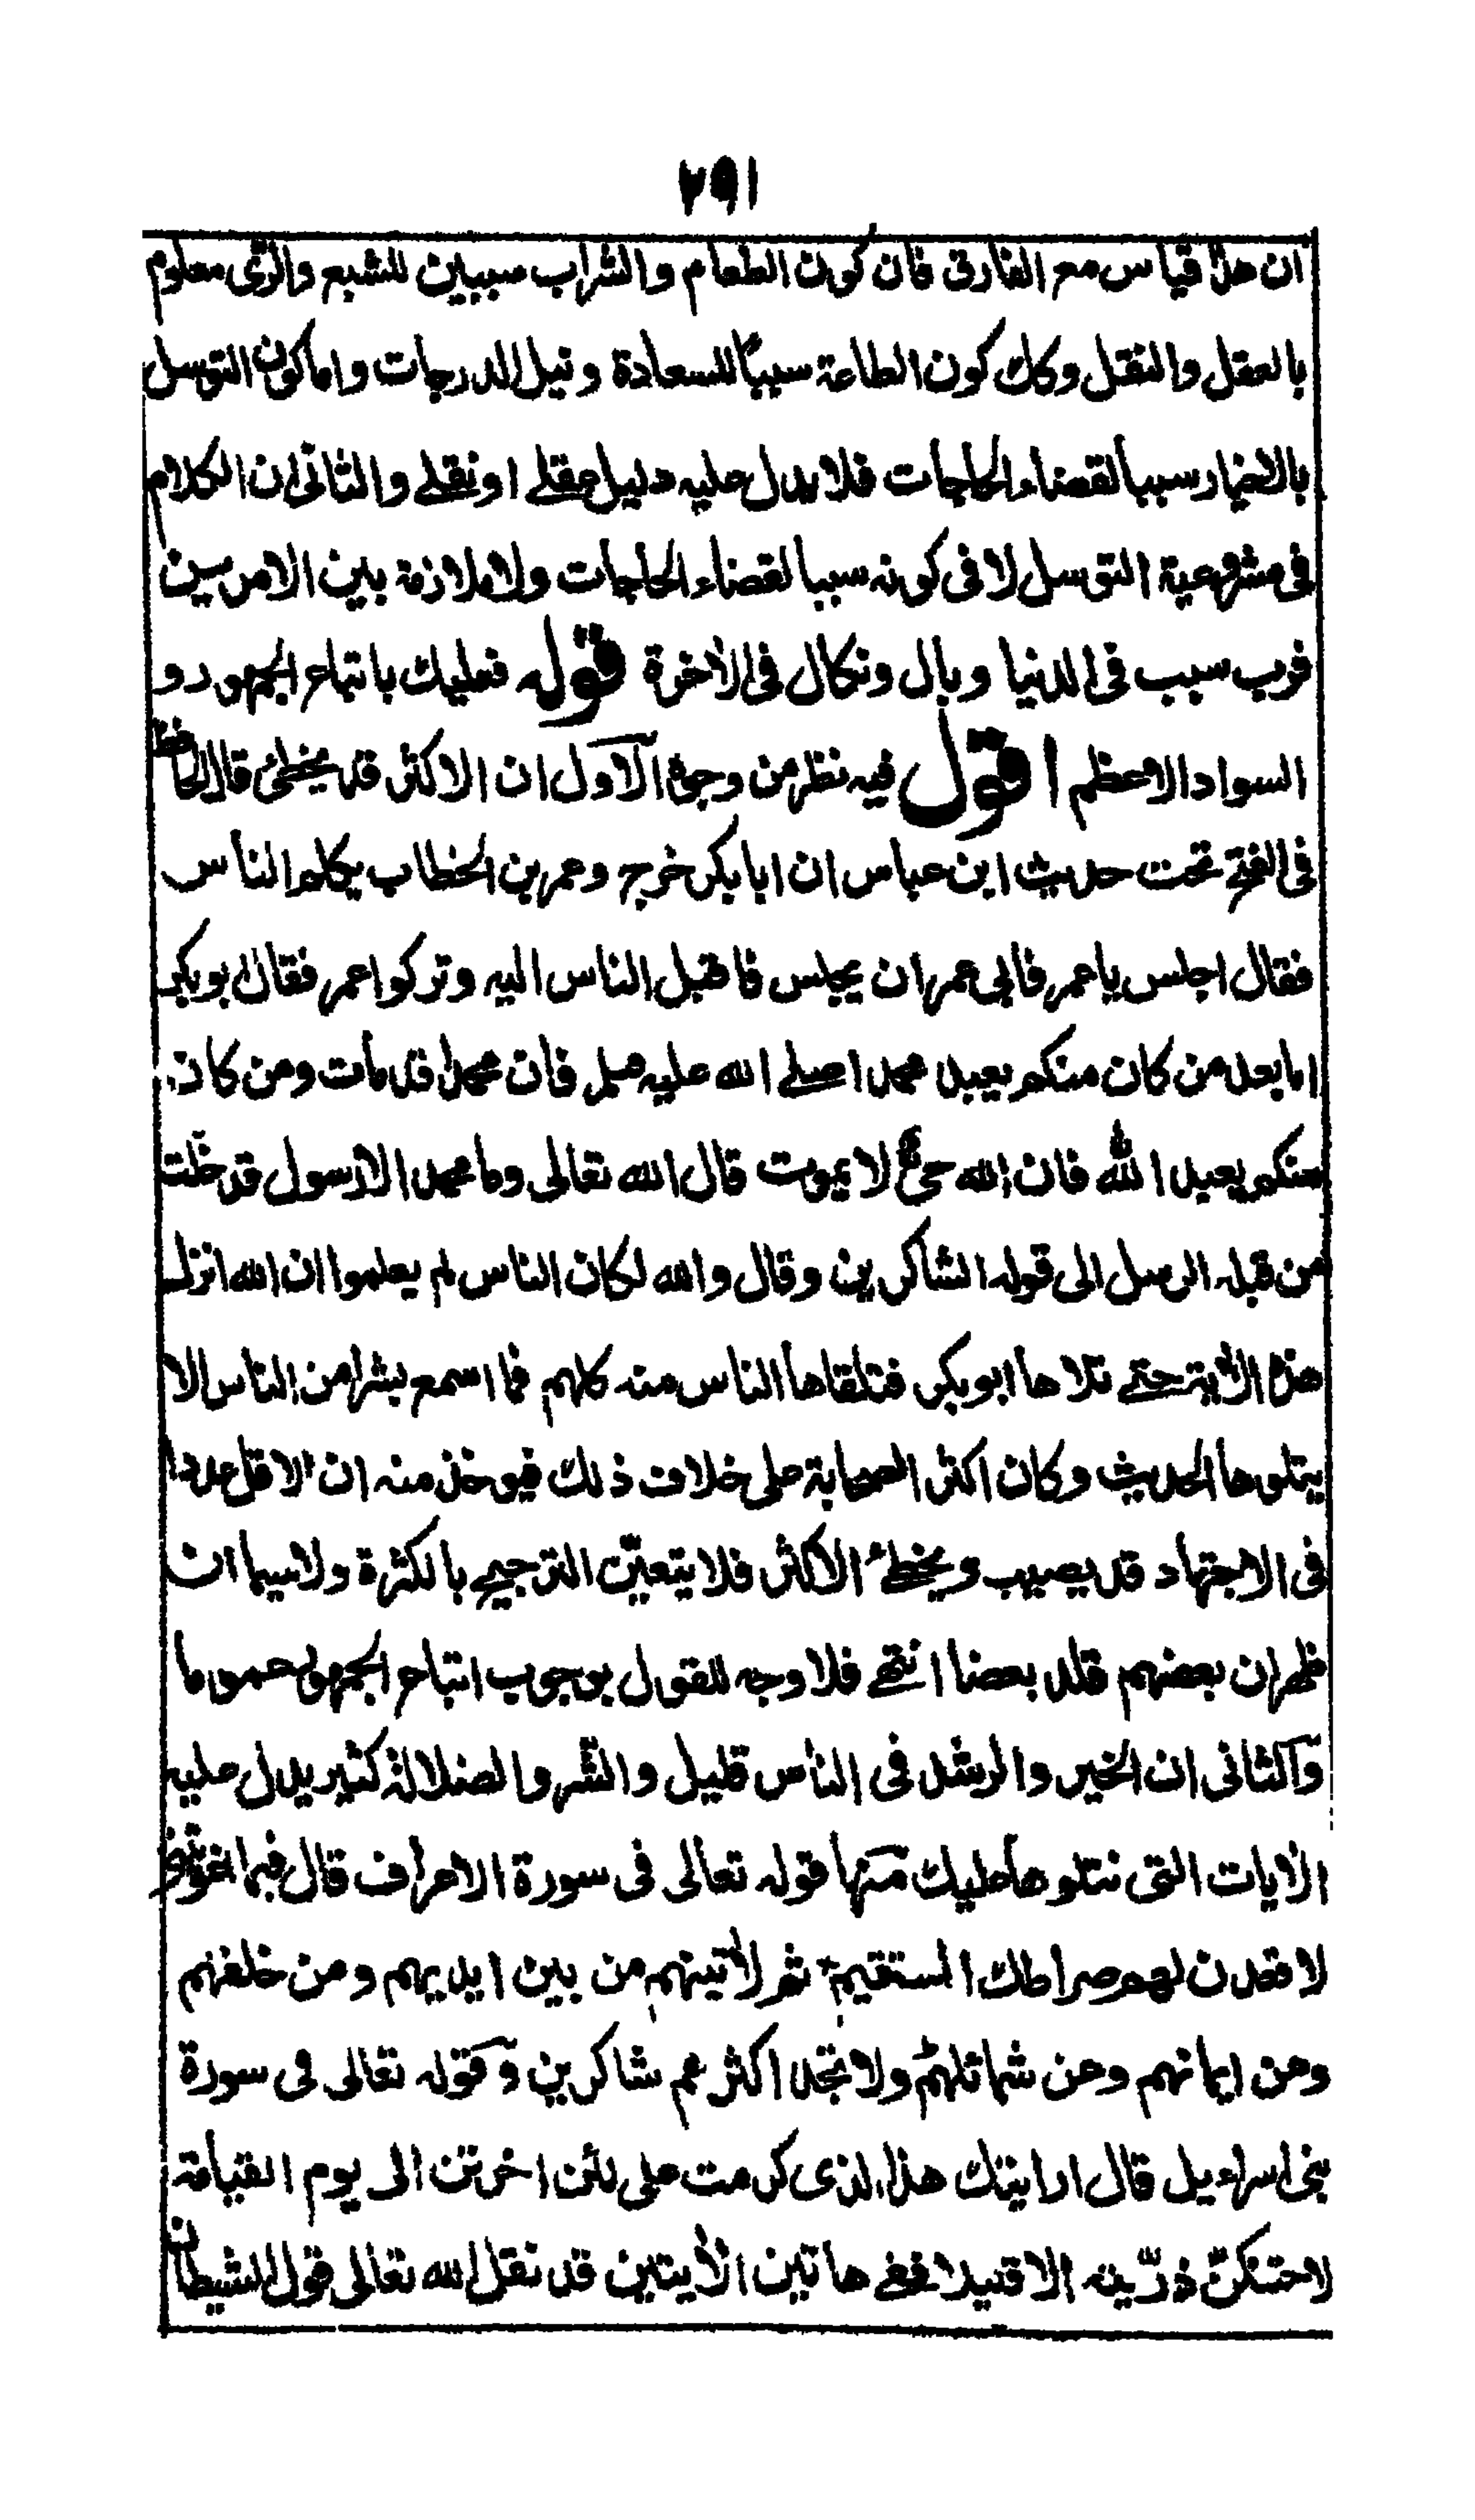 ١٥٧
ان هذا قياس مع الفارق فان كون الطعام والشراب سببين للشبع والرّى معلوم
بالعقل والنقل وكك كون الطاعة سببًا للسعادة ونيل الدرجات واما كون التوسل
بالاخيار سببا لقضاء الحاجات فلا يدل عليه دليل عقلے او نقلے والثانى ان الكلام
فى مشروعية التوسل لا فى كونه سببا لقضاء الحاجات ولا ملازمة بين الامرين
فرب سبب فى الدنيا وبال ونكال فى الاخرة قوله فعليك باتباع الجمهور و
السواد الاعظم اقول فيه نظر من وجوه الآول ان الاكثر قد يخطئ قال الحافظ
فى الفتح تحت حديث ابن عباس ان ابا بكر خرج وعمر بن الخطاب يكلم الناس
فقال اجلس يا عمر فابى عمر ان يجلس فاقبل الناس اليه وتركوا عمر فقال ابو بكر
اما بعد من كان منكم يعبد محمدا صلے الله عليه وسلم فان محمدا قد مات ومن كان
منكم يعبد الله فان الله حىّ لا يموت قال الله تعالى وما محمد الا رسول قد خلت
من قبله الرسل الى قوله الشاكرين وقال والله لكان الناس لم يعلموا ان الله انزل
هذه الآية حتے تلاها ابو بكر فتلقاها الناس منه كلهم فما اسمع بشرا من الناس الا
يتلوها الحديث وكان اكثر الصحابة على خلاف ذلك فيوخذ منه ان الاقل عددا
فى الاجتهاد قد يصيب ويخطئ الاكثر فلا يتعيّن الترجيح بالكثرة ولا سيما ان
ظهر ان بعضهم قلد بعضا انتهے فلا وجه للقول بوجوب اتباع الجمهور عموما
وآلثانى ان الخير والرشد فى الناس قليل والشر والضلالة كثير يدل عليه
الآيات التى نتلوها عليك منها قوله تعالى فى سورة الاعراف قال فبما اغويتنى
لاقعدن لهم صراطك المستقيم ثم لآتينهم من بين ايديهم ومن خلفهم
وعن ايمانهم وعن شمائلهم ولا تجد اكثرهم شاكرين وقوله تعالى فى سورة
بنى اسراءيل قال ارايتك هذا الذى كرمت على لئن اخرتن الى يوم القيامة
لاحتنكنّ ذرّيته الا قليلا ففے هاتين الآيتين قد نقل الله تعالى قول الشيطان